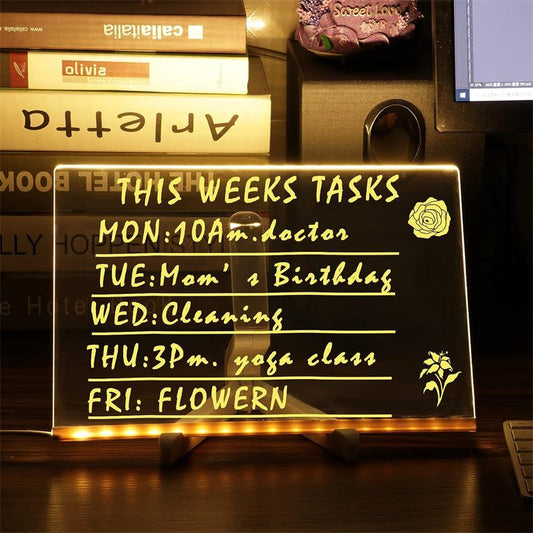 www.callaitalia.com callaitalia
olivia
Arletta
THE HOTEL BOOK
LLY HOPPEN
The Hote
Sweet Love
THIS WEEKS TASKS
MON:10Am.doctor
TUE:Mom's Birthdag
WED:Cleaning
THU:3Pm. yoga class
FRI: FLOWERN